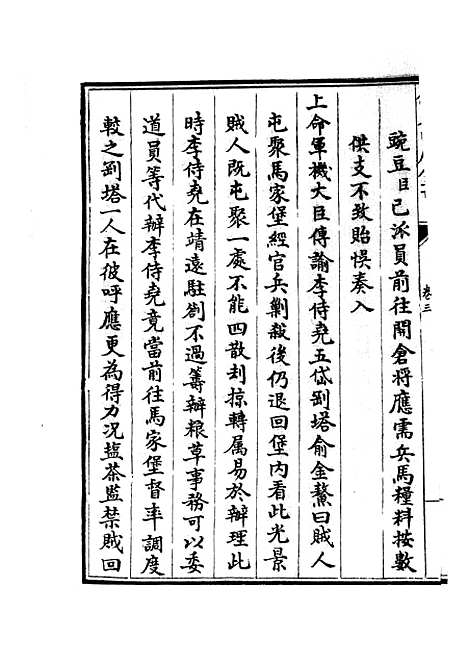 豌豆且已派員前往開倉将應需兵馬糧料按數
供支不致貽悮奏入
上命軍機大臣傳諭李侍堯五岱剄塔俞金鰲曰賊人
屯聚馬家堡經官兵剿殺後仍退回堡內看此光景
賊人既屯聚一處不能四散刦掠轉属易於辦理此
時李侍堯在靖遠駐劄不過籌辦粮草事務可以委
道員等代辦李侍堯竟當前往馬家堡督率調度
較之剄塔一人在彼呼應更為得力况塩茶監禁賊回
卷三